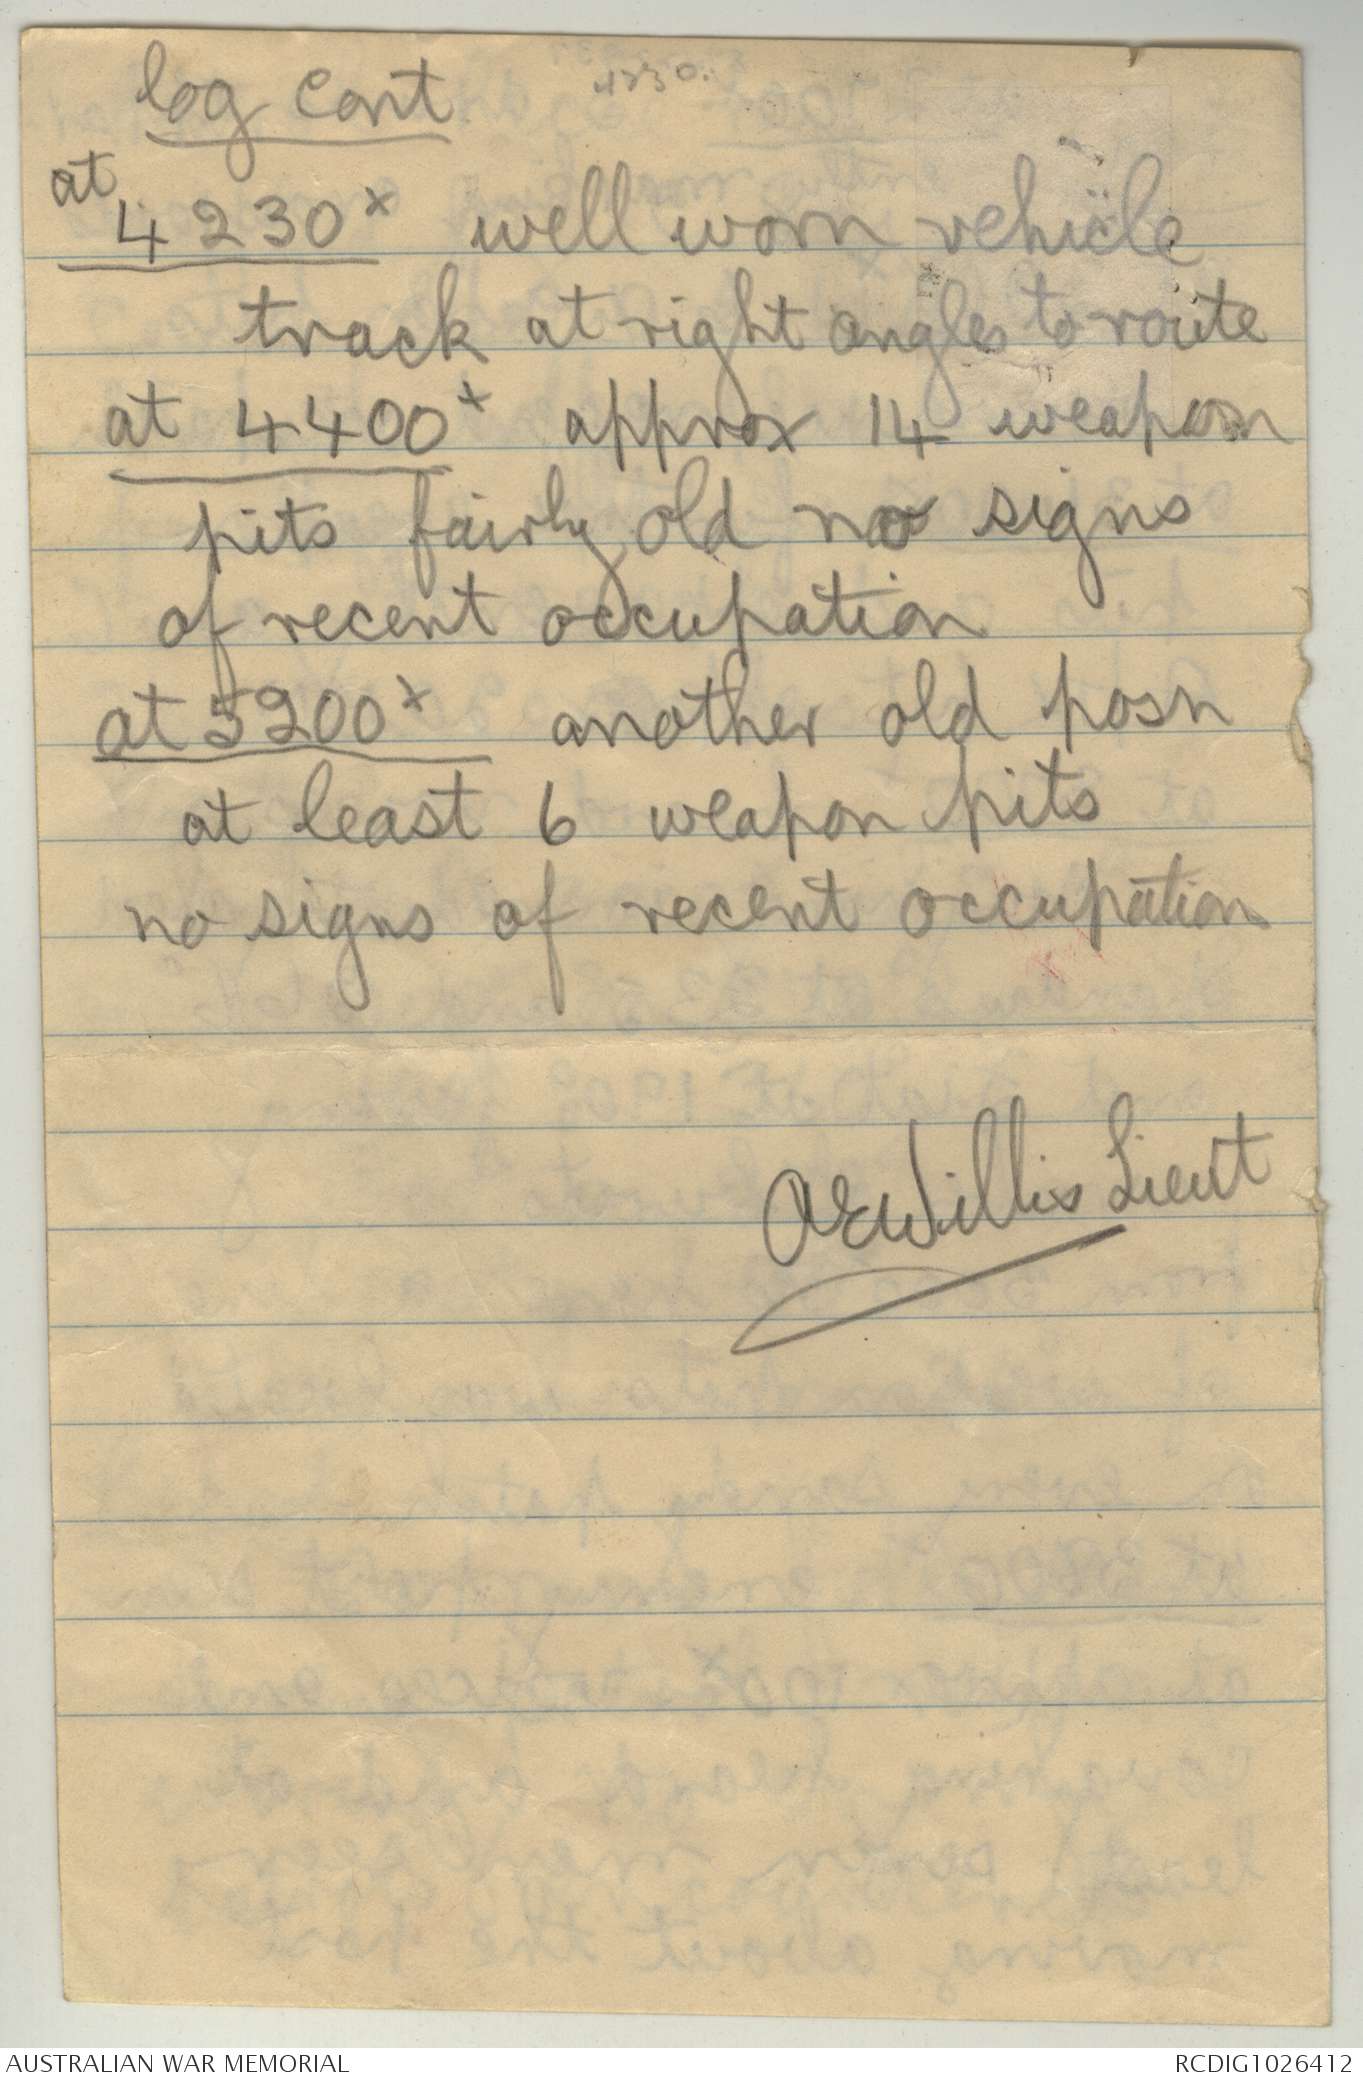 log Cont
4230.
at
4230x well worn vehicle
track at right angles to route
at 4400x approx 14 weapon
pits fairly old no signs
of recent occupation
at 5200x another old posn
at least 6 weapon pits
no signs of recent occupation
AEWillis Lieut
AUSTRALIAN WAR MEMORIAL
RCDIG1026412